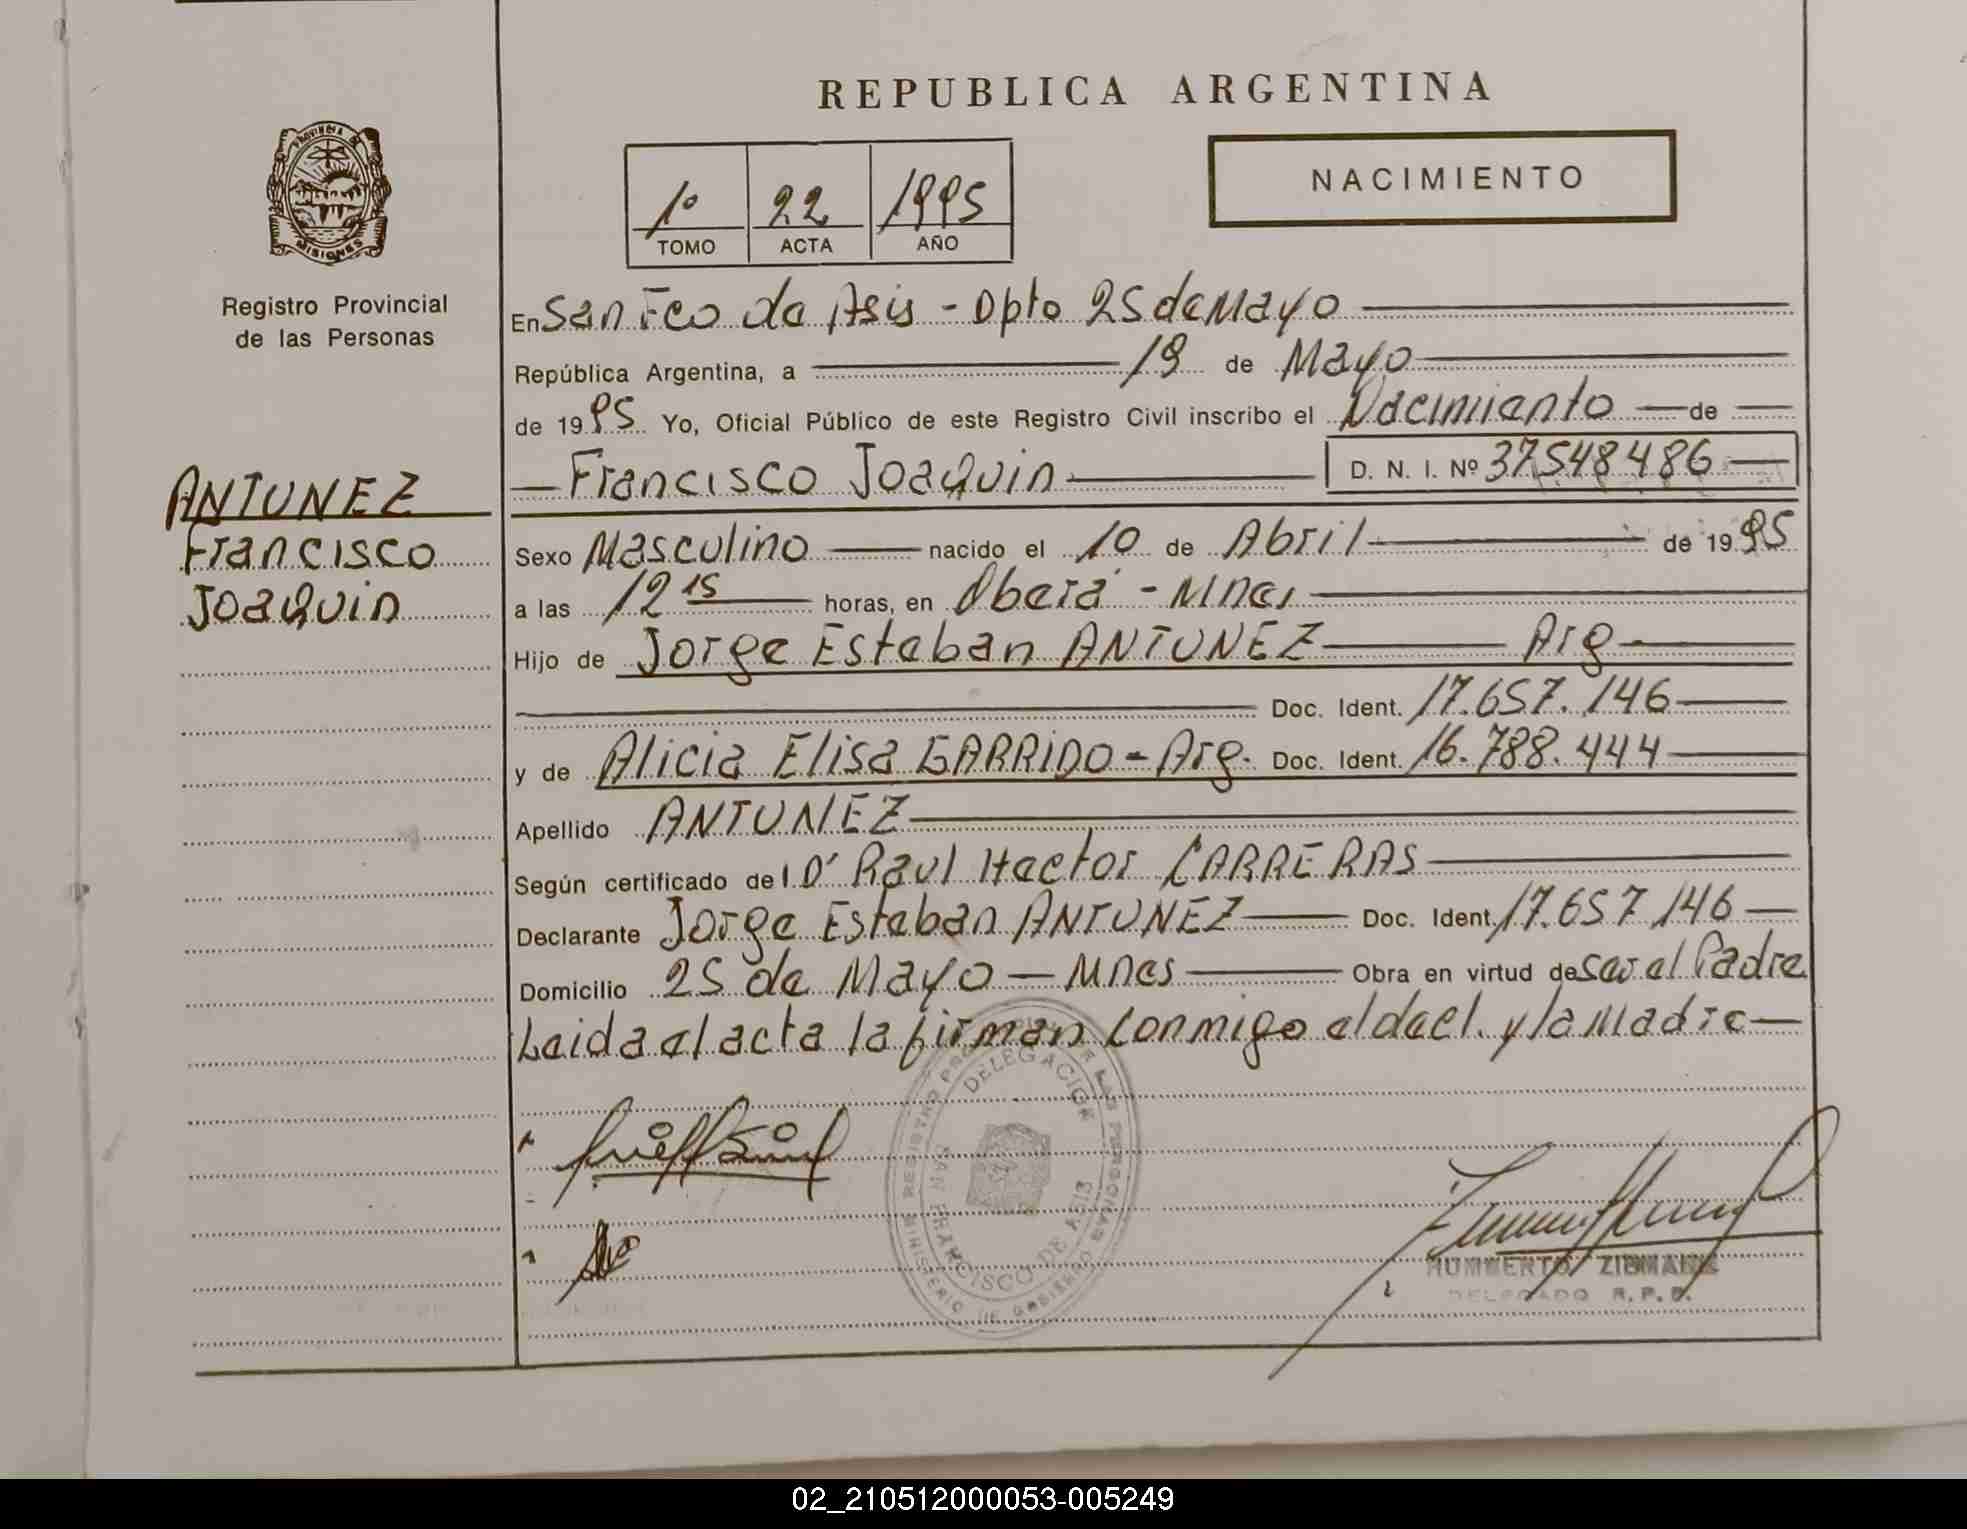 REPUBLICA ARGENTINA
PROVINCIA DE
MISIONES
Registro Provincial
de las Personas
1º 22 1995
TOMO ACTA AÑO
NACIMIENTO
En San Fco de Asis - Dpto 25 de Mayo
República Argentina, a 19 de Mayo
de 1995 Yo, Oficial Público de este Registro Civil inscribo el Nacimiento de
Francisco Joaquin D. N. I. Nº 37548486
ANTUNEZ
Francisco
Joaquin
Sexo Masculino nacido el 10 de Abril de 1995
a las 12 15 horas, en Oberá - Mnes
Hijo de Jorge Esteban ANTUNEZ Arg
Doc. Ident. 17.657.146
y de Alicia Elisa GARRIDO - Arg. Doc. Ident. 16.788.444
Apellido ANTUNEZ
Según certificado del Dr Raul Hector CARRERAS
Declarante Jorge Esteban ANTUNEZ Doc. Ident. 17.657.146
Domicilio 25 de Mayo - Mnes Obra en virtud de ser el Padre
Leida el acta la firman conmigo el decl. y la Madre
REGISTRO PROVINCIAL DE LAS PERSONAS
DELEGACION
SAN FRANCISCO DE ASIS
MINISTERIO DE GOBIERNO
ZIEMANN
DELEGADO R. P. P.
02_210512000053-005249